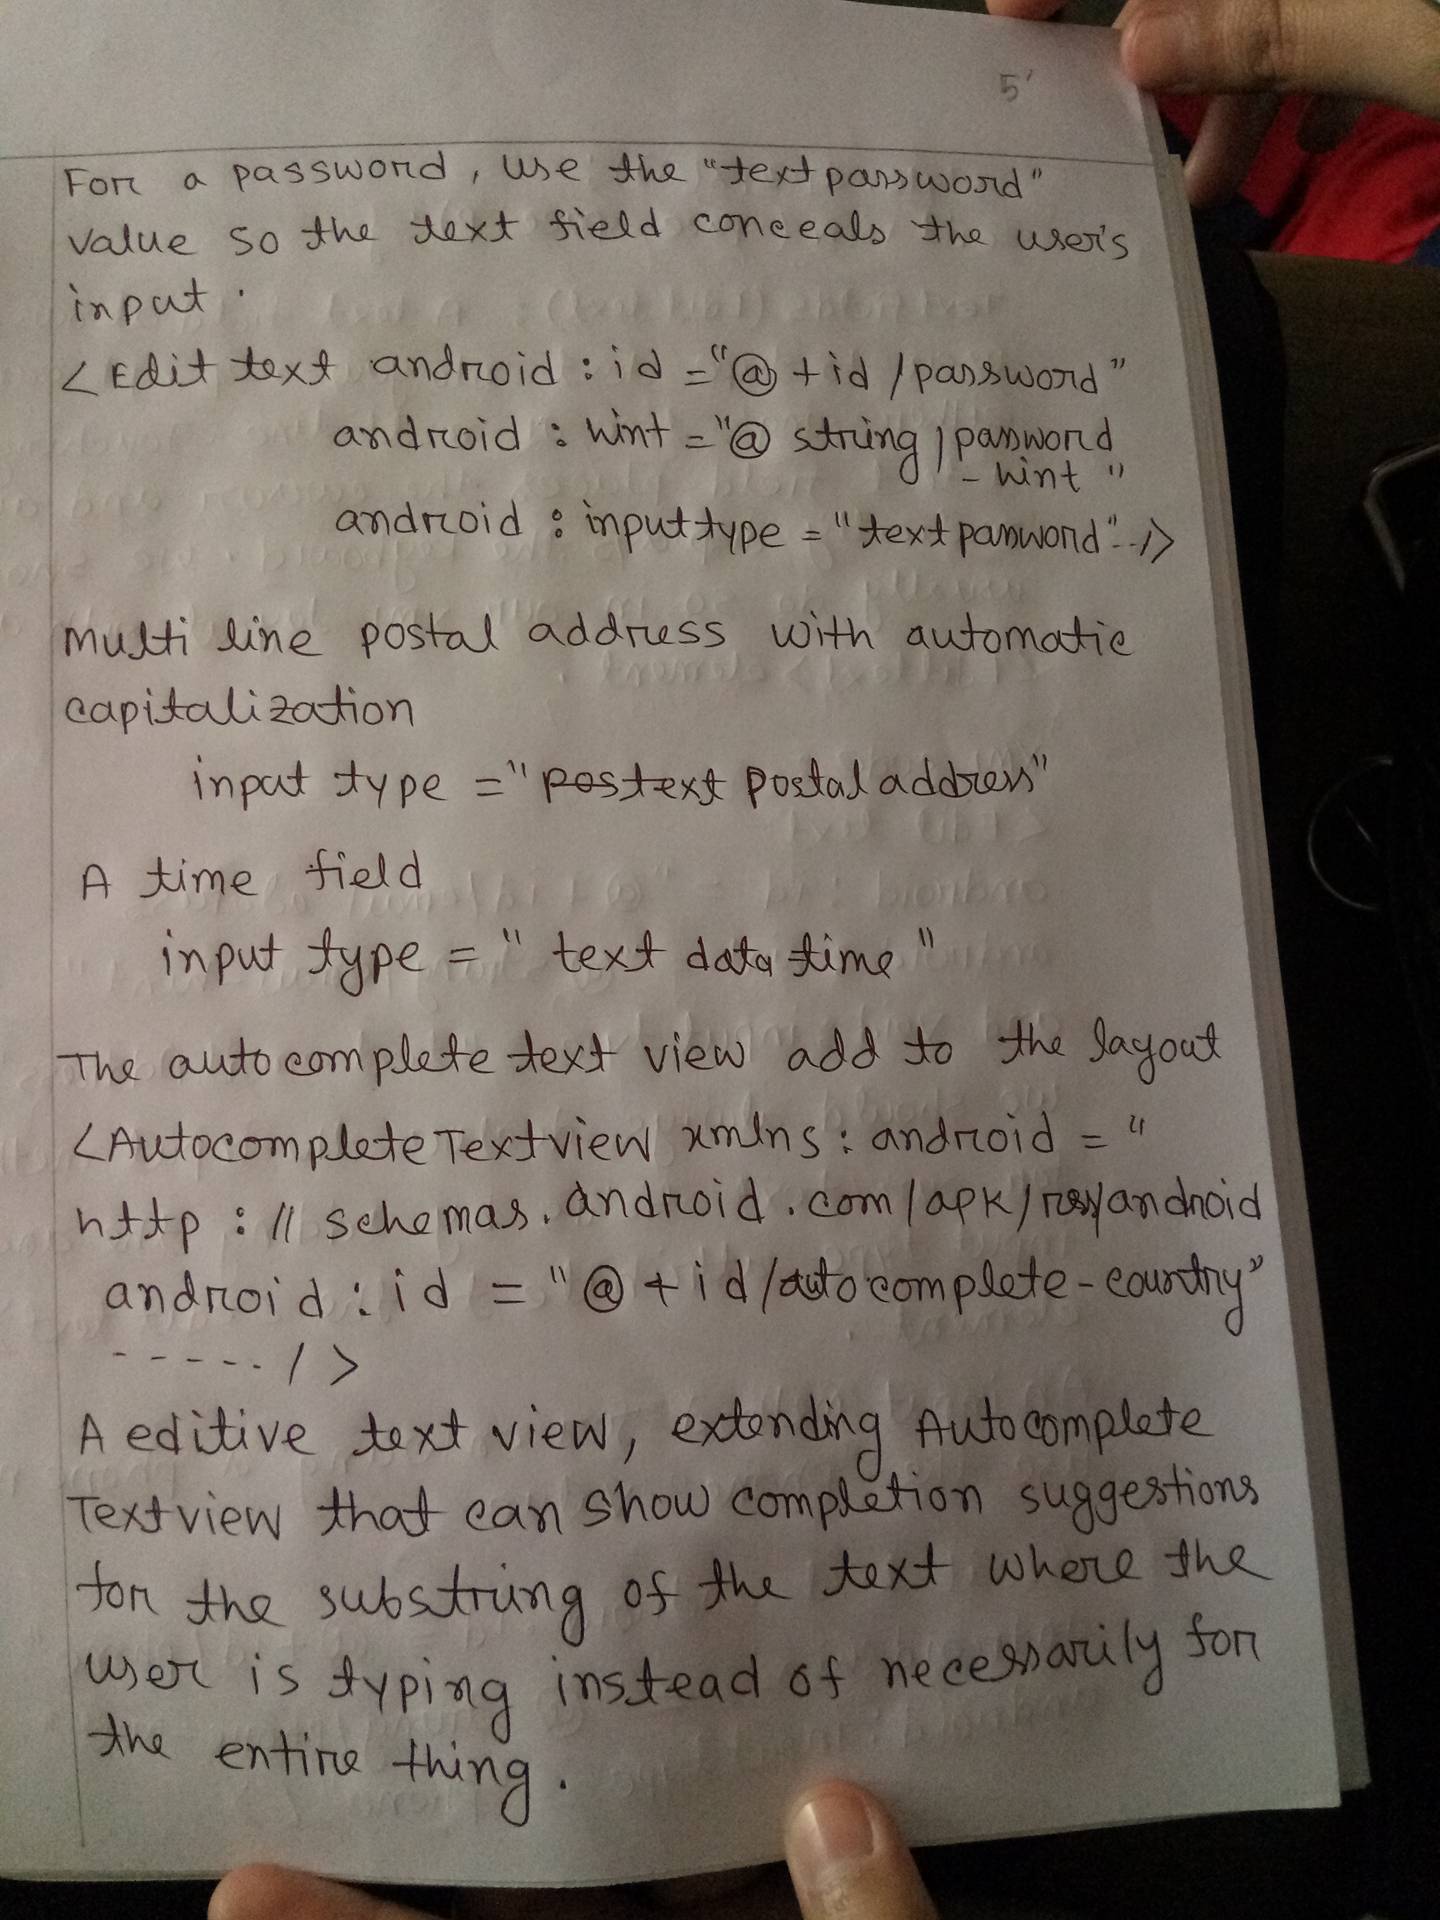 5'
For a password, use the "text password"
value so the text field conceals the user's
input.
<Edit text android : id = "@ + id / password"
android : hint = "@ string / password
- hint "
android : input type = "text password" -- />
multi line postal address with automatic
capitalization
input type = "postext postal address"
A time field
input type = " text data time "
The autocomplete text view add to the layout
<Autocomplete Textview xmlns : android = "
http : // schemas. android . com / apk / res/android
android : id = "@ + id /autocomplete - country"
- - - - -. / >
A editive text view, extending Autocomplete
Textview that can show completion suggestions
for the substring of the text where the
user is typing instead of necessarily for
the entire thing.